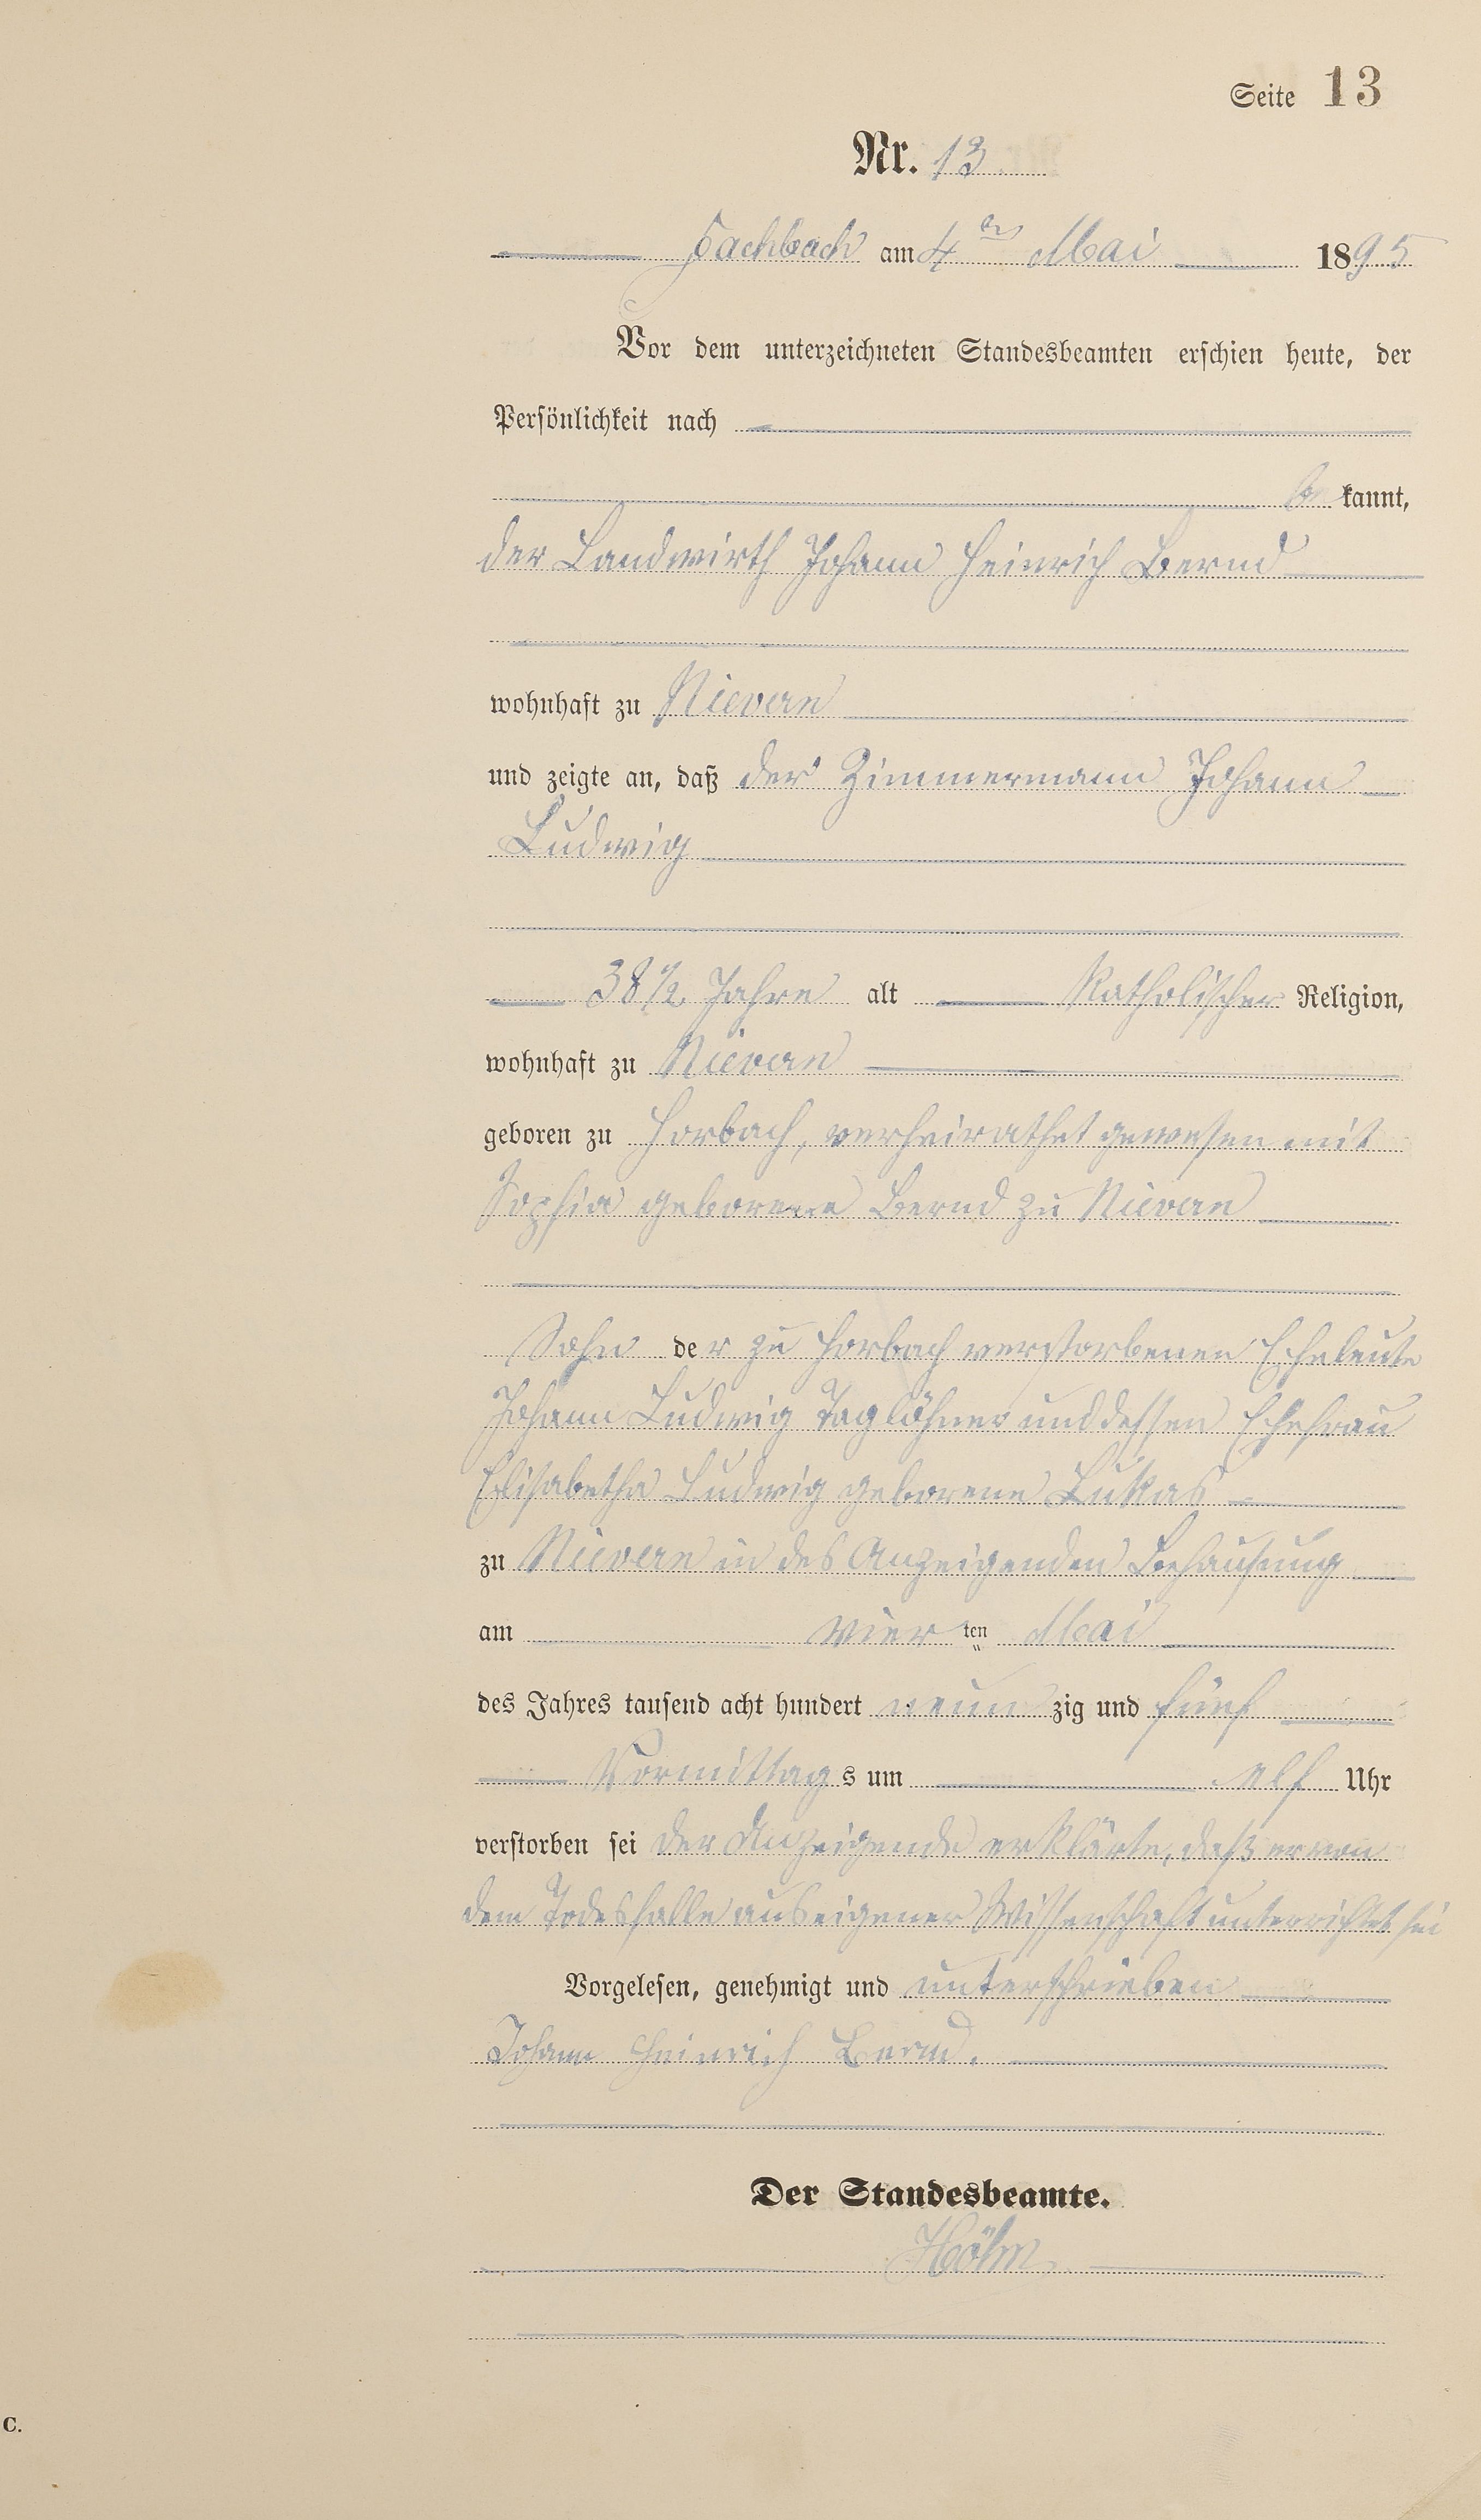 Seite 13
Nr. 13
Fachbach am 4ten Mai 1895
Vor dem unterzeichneten Standesbeamten erschien heute, der
Persönlichkeit nach
be kannt,
der Landwirth Johann Heinrich Bernd
wohnhaft zu Nievern
und zeigte an, daß der Zimmermann Johann
Ludwig
38 1/2 Jahre alt Katholischer Religion,
wohnhaft zu Nievern
geboren zu Horbach, verheirathet gewesen mit
Sophia geborene Bernd zu Nievern
Sohn der zu Horbach verstorbenen Eheleute
Johann Ludwig Taglöhner und dessen Ehefrau
Elisabetha Ludwig geborene Lukas
zu Nievern in des Anzeigenden Behausung
am vier ten Mai
des Jahres tausend acht hundert neun zig und fünf
Vormittag s um elf Uhr
verstorben sei der Anzeigende erklärte, daß er von
dem Todesfalle aus eigener Wissenschaft unterrichtet sei
Vorgelesen, genehmigt und unterschrieben
Johann Heinrich Bernd.
Der Standesbeamte.
Höhn
C.